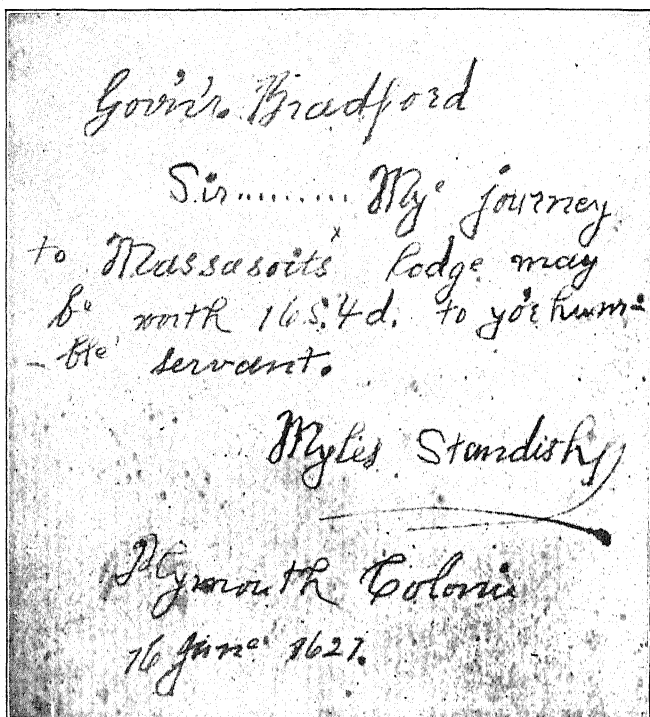 Gov'n'r. Bradford
Sir......... My journey
to Massasoits' lodge may
be worth 16S.4d. to yo'r hum-
-ble servant.
Myles Standish
Plymouth Colonie
16 June 1627.